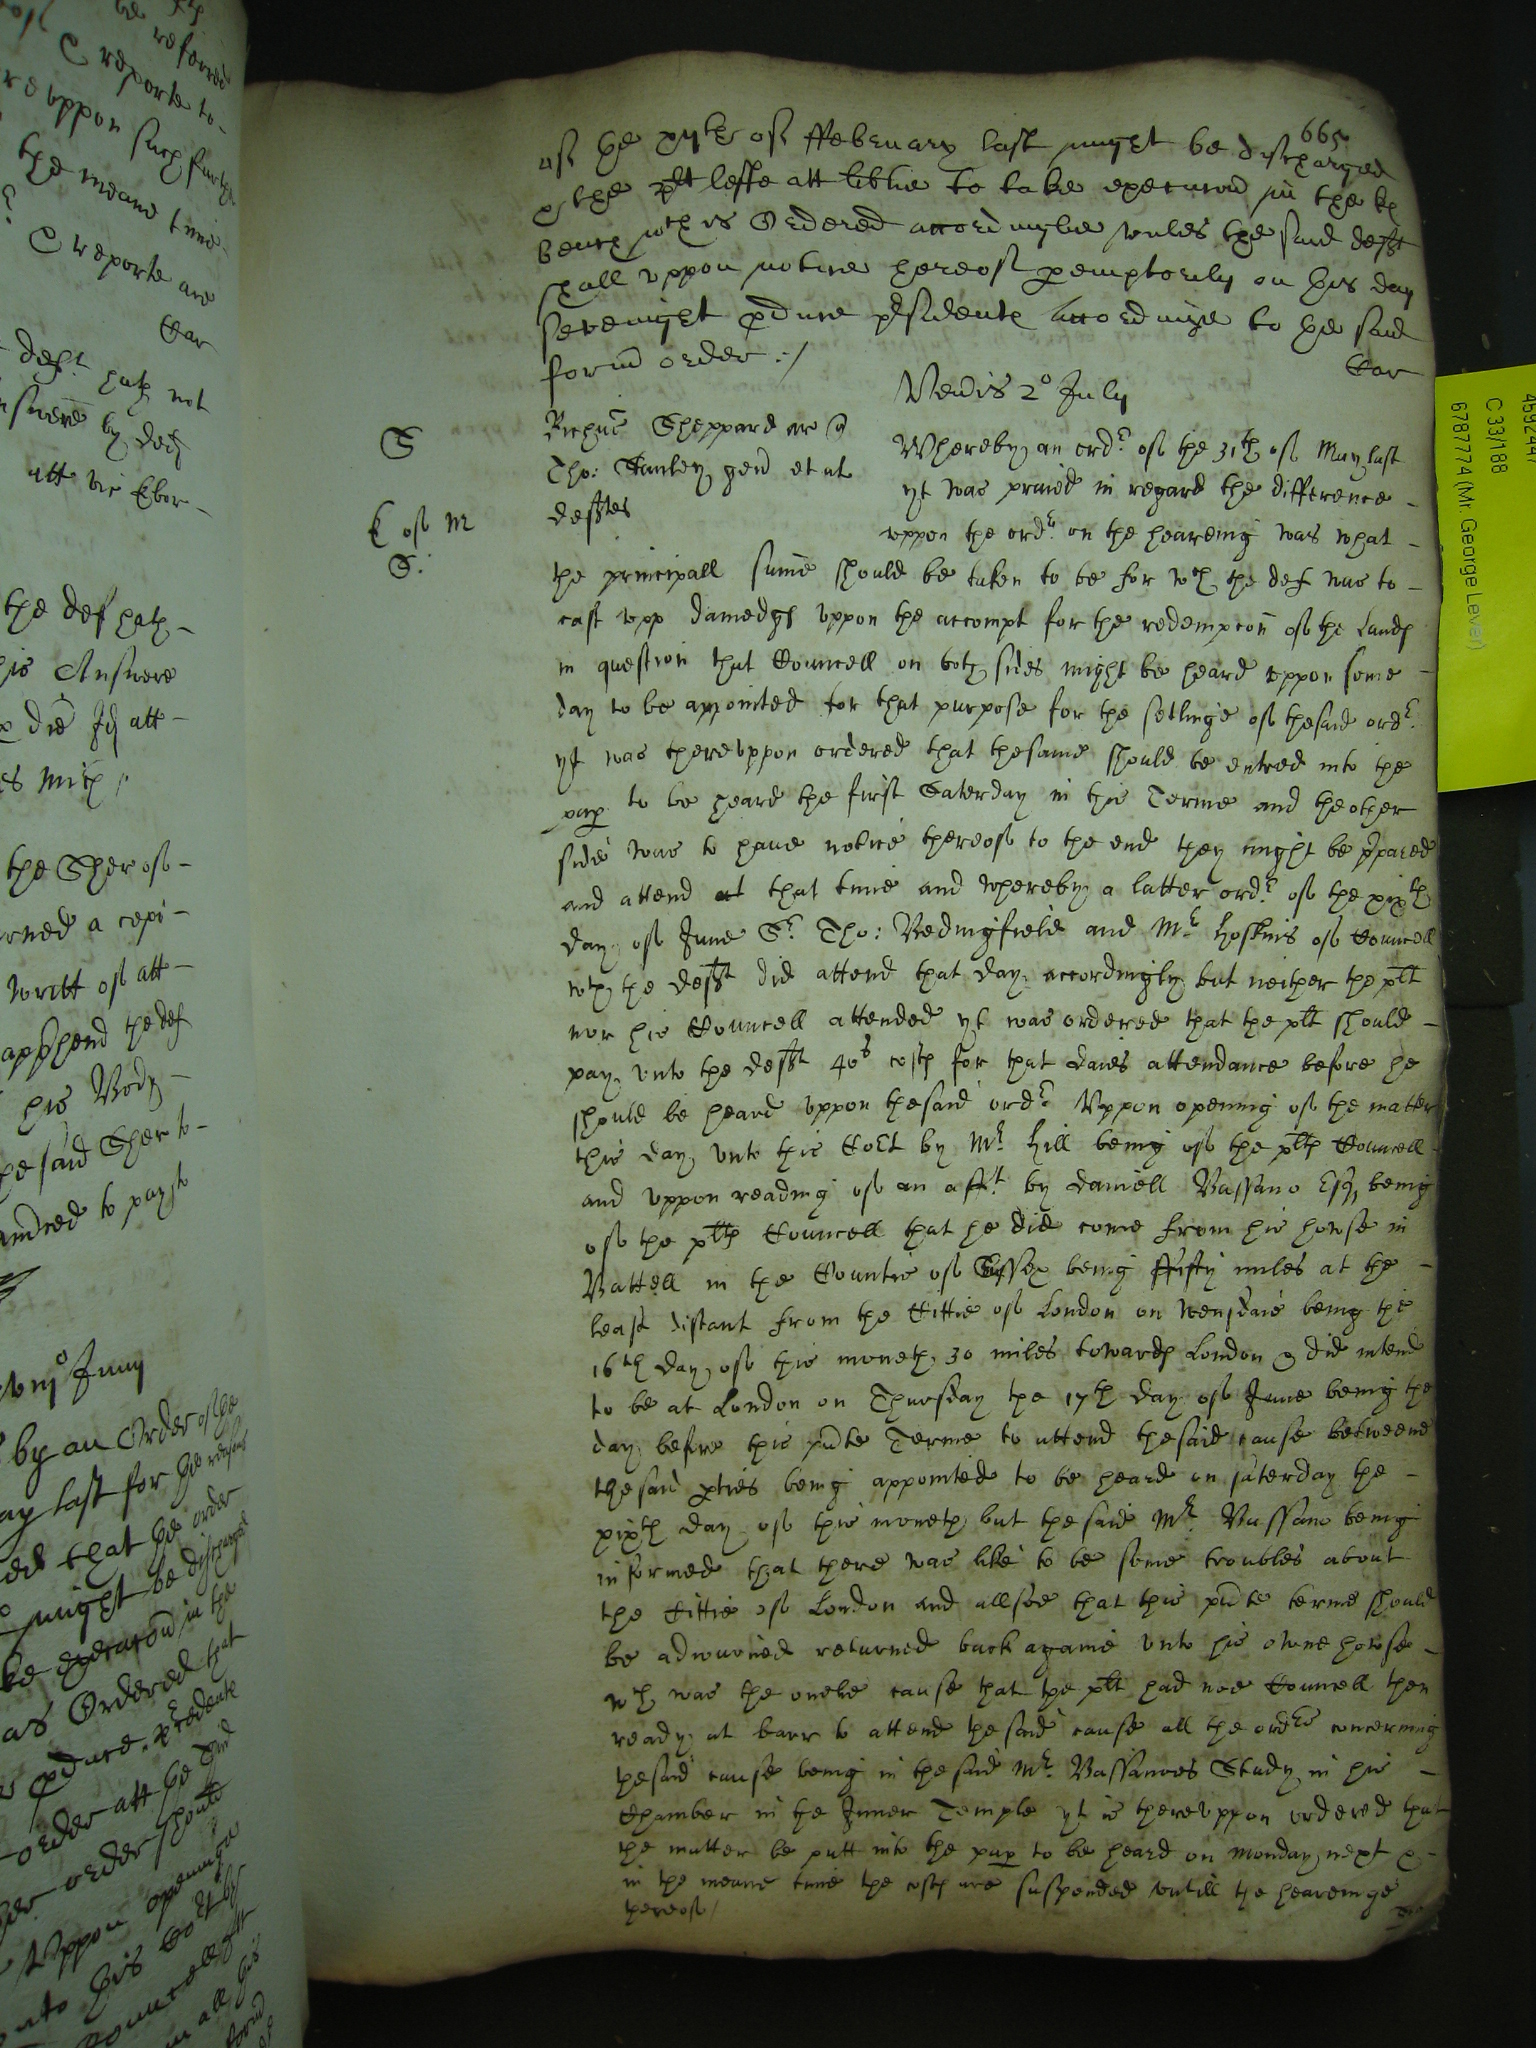 665
of the xijth of ffebruary last might be discharged
& the plt lefte att libtie to take execucon in the
bench wch is Ordered accordinglie vnles the said deft
shall vppon notice hereof peremptorily on this day
sevenight pduce psidents accordinge to the said
former order :/
Ven̄is 2° July
S
Richus Sheppard ar q
Tho: Stanley gen et al
deftes
Whereby an ordr of the 31th of May last
yt was praied in regard the difference -
vppon the ordr on the heareing was what -
the principall sume should be taken to be for wch the def was to -
cast vpp damedgs vppon the accompt for the redempcon of the Lands
in question that Councell on both sides might be heard vppon some -
day to be appointed for that purpose for the setlinge of thesaid ordr
yt was therevppon ordered that thesame should be entred into the
pap to be heard the first Saterday in this Terme and theother
side was to haue notice thereof to the end they might be ppared
and attend at that time and whereby a latter ordr of the xixth
day of June Sr Tho: Bedingfield and Mr Hoskins of Councell
wth the deft did attend that day accordingly but neither the plt
nor his Councell attended yt was ordered that the plt should -
pay vnto the deft 40s costs for that daies attendance before he
should be heard vppon thesaid ordr Vppon opening of the matter
this day vnto this Cort by Mr Hill being of the plts Councell
and vppon reading of an afft by Daniell Bassano Esq being
of the plts Councell that he did come from his howse in
Battell in the Countie of Sussex being ffifty miles at the -
least distant from the Cittie of London on Wensdaie being the
16th day of this moneth 30 miles towards London & did intend
to be at London on Thursday the 17th day of June being the
day before this pnte Terme to attend thesaid cause betweene
thesaid pties being appointed to be heard on saterday the -
xixth day of this moneth but thesaid Mr Bassano being
informed that there was like to be some troubles about
the Cittie of London and allsoe that this pnte terme should
be adiourned returned back againe vnto his owne howse -
wch was the onelie cause that the plt had noe Councell then
ready at barr to attend thesaid cause all the ordrs concerning
thesaid cause being in thesaid Mr Bassanoes Study in his -
Chamber in the Inner Temple yt is therevppon ordered that
the matter be putt into the pap to be heard on Monday next &
in the meane time the costs are suspended vntill the heareinge
thereof /
the def hath -
his Answere
the Sher of -
writt of att -
his Body -
he said Sher to -
by an Order of the
ay last for the
that the order
might be discharged
as Ordered that
order att the
order should
Vppon openinge
4592447
C 33/188
6787774 (Mr. George Lever)